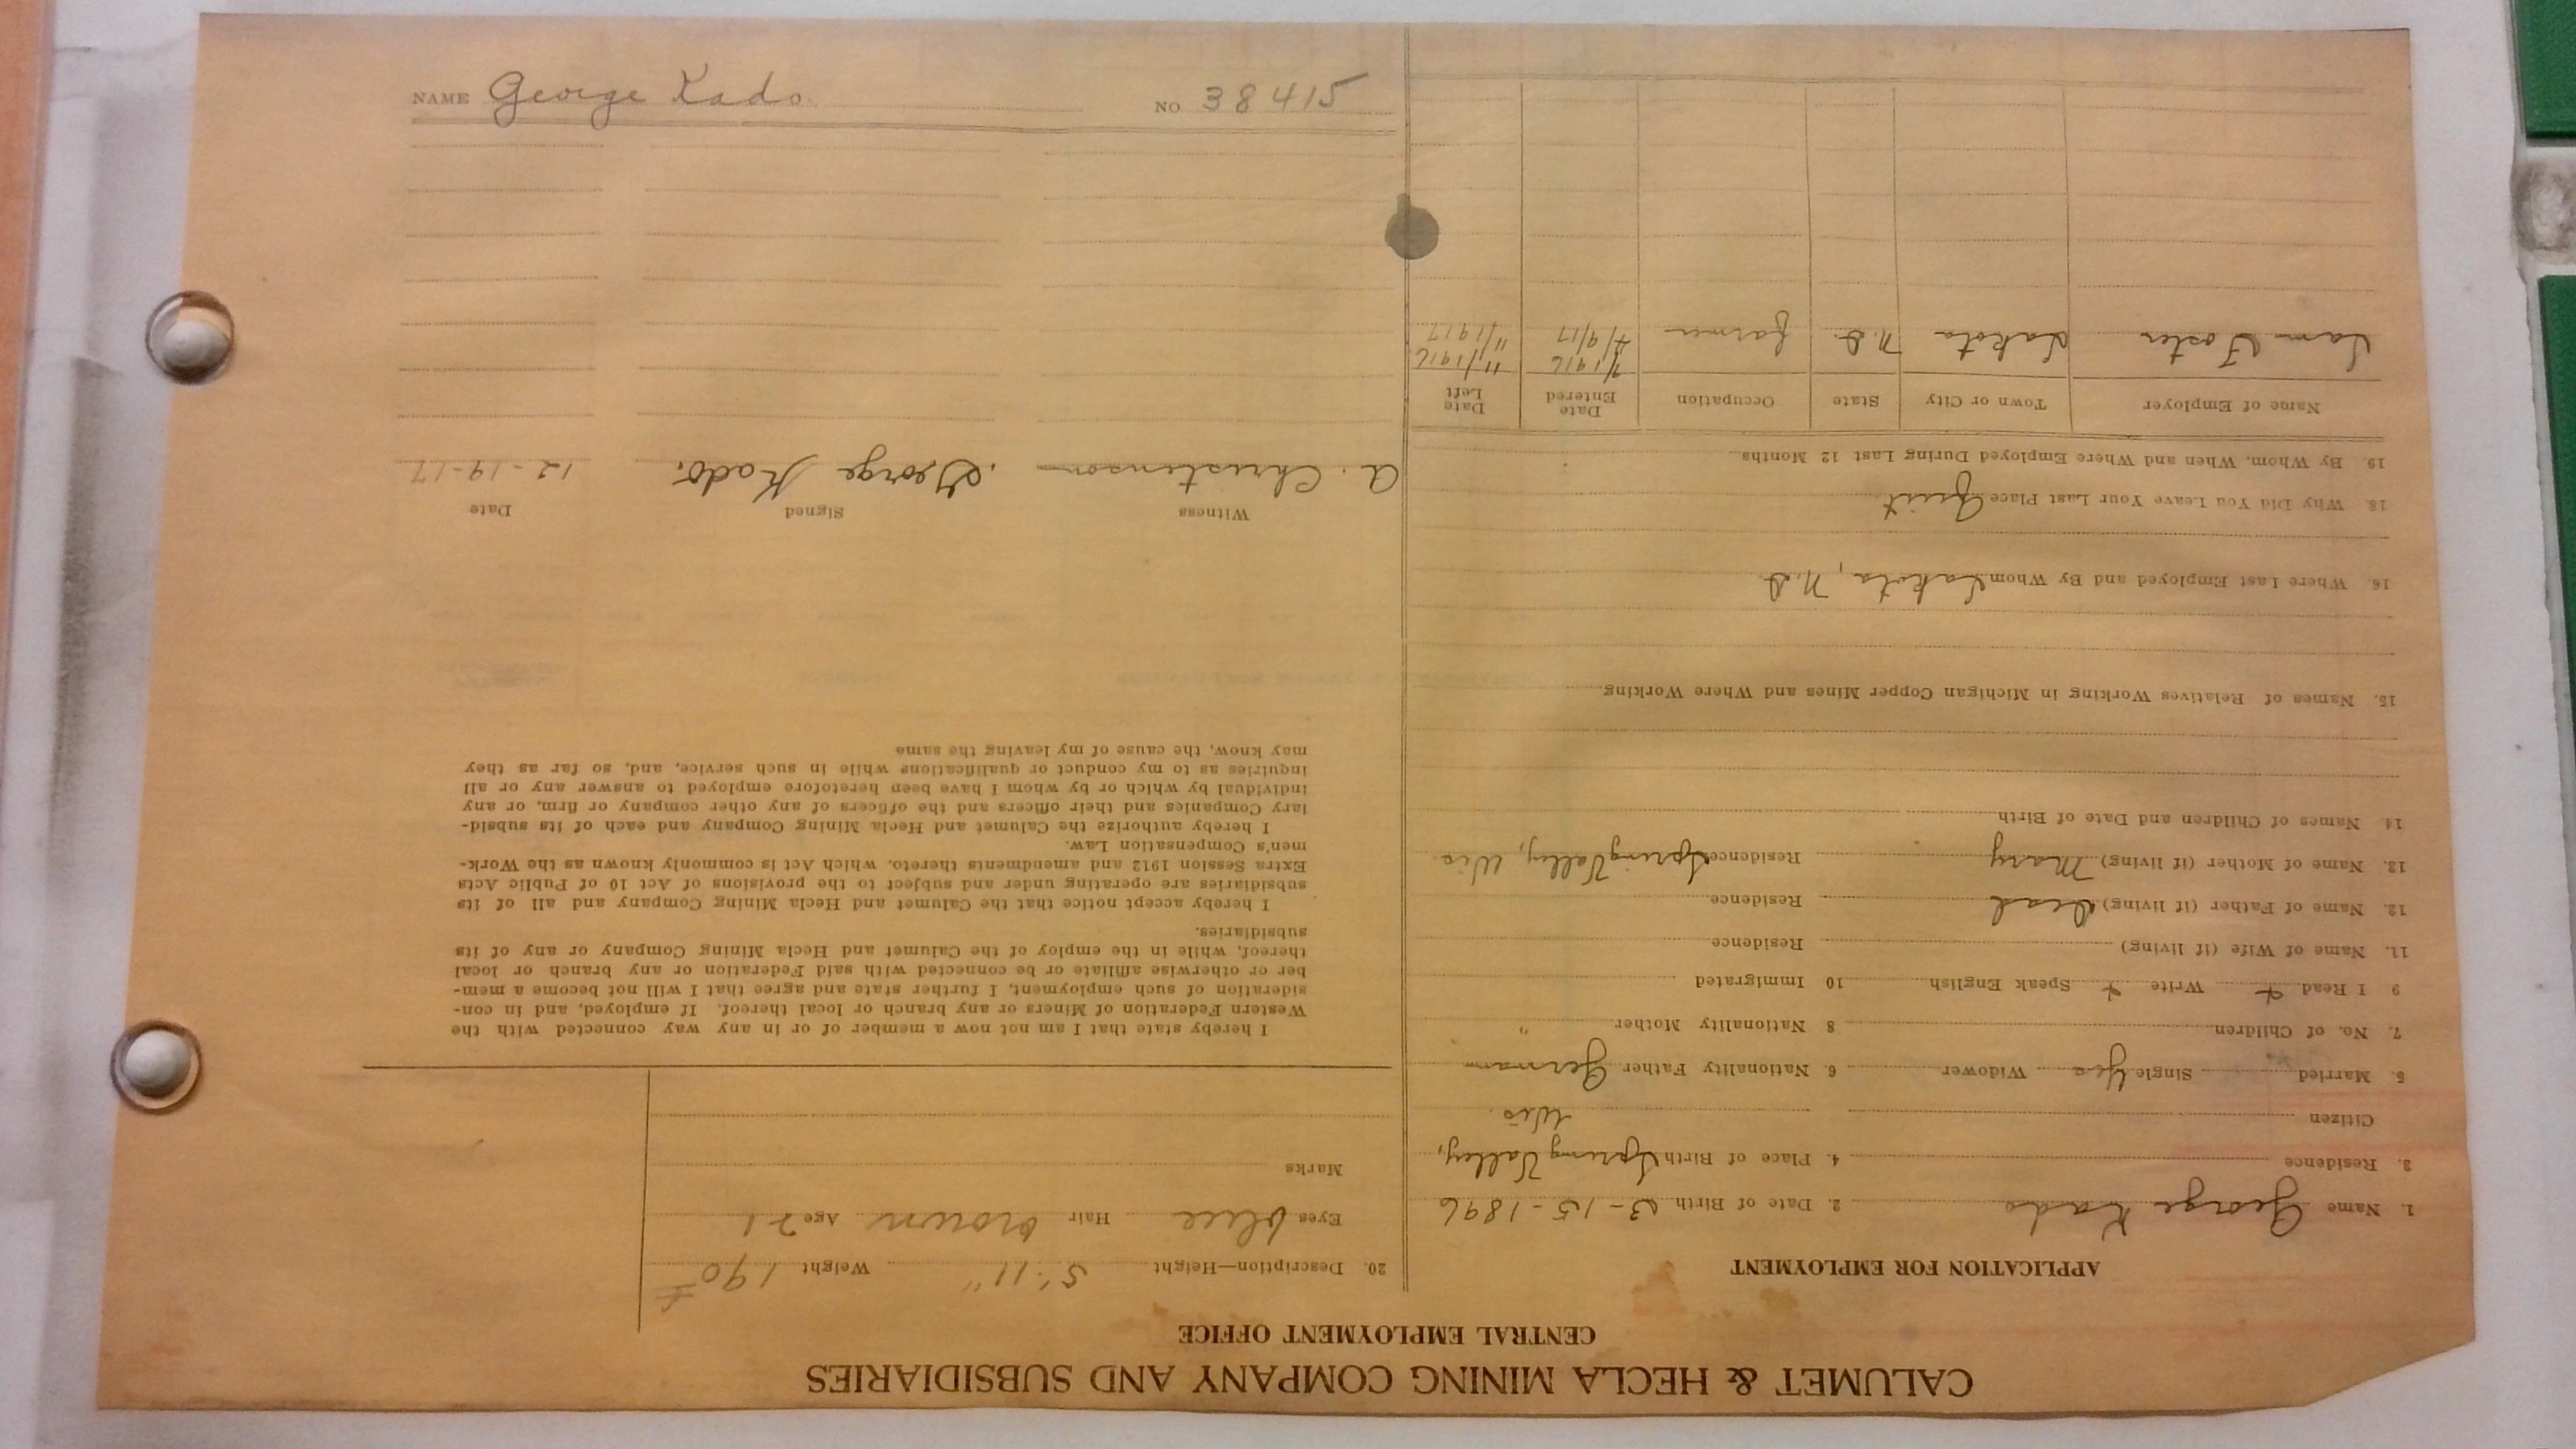 CALUMET & HECLA MINING COMPANY AND SUBSIDIARIES
CENTRAL EMPLOYMENT OFFICE
APPLICATION FOR EMPLOYMENT
1. Name George Kado 2. Date of Birth 3-15-1896
3. Residence 4. Place of Birth Spring Valley,
Citizen Wis.
5. Married Single Yes Widower 6. Nationality Father German
7. No. of Children 8 Nationality Mother "
9 I Read + Write + Speak English 10 Immigrated
11. Name of Wife (if living) Residence
12. Name of Father (if living) Dead Residence
13. Name of Mother (if living) Mary Residence Spring Valley, Wis
14. Names of Children and Date of Birth
15. Names of Relatives Working in Michigan Copper Mines and Where Working
16. Where Last Employed and By Whom Lakota, N.D
18. Why Did You Leave Your Last Place Quit
19. By Whom, When and Where Employed During Last 12 Months
Name of Employer Town or City State Occupation Date Entered Date Left
7/1916 11/1916
Sam Foster Lakota N.D. farmer 4/917 11/1917
20. Description—Height 5' 11" Weight 190 #
Eyes blue Hair brown Age 21
Marks
I hereby state that I am not now a member of or in any way connected with the
Western Federation of Miners or any branch or local thereof. If employed, and in con-
sideration of such employment, I further state and agree that I will not become a mem-
ber or otherwise affiliate or be connected with said Federation or any branch or local
thereof, while in the employ of the Calumet and Hecla Mining Company or any of its
subsidiaries.
I hereby accept notice that the Calumet and Hecla Mining Company and all of its
subsidiaries are operating under and subject to the provisions of Act 10 of Public Acts
Extra Session 1912 and amendments thereto, which Act is commonly known as the Work-
men's Compensation Law.
I hereby authorize the Calumet and Hecla Mining Company and each of its subsid-
iary Companies and their officers and the officers of any other company or firm, or any
individual by which or by whom I have been heretofore employed to answer any or all
inquiries as to my conduct or qualifications while in such service, and, so far as they
may know, the cause of my leaving the same
Witness Signed Date
A. Christenson George Kado. 12-19-17
NAME George Kado NO 38415